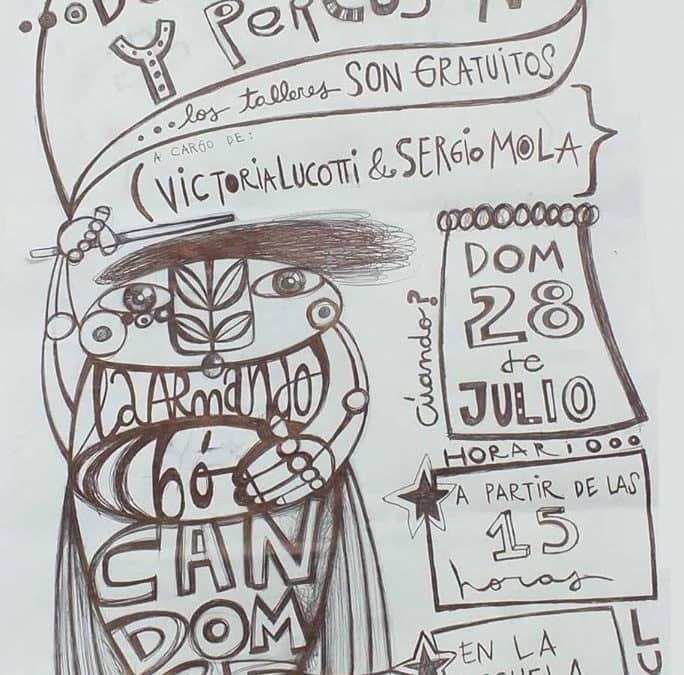 Y PERCUS
...los talleres SON GRATUITOS
A CARGO DE:
(VICTORIA LUCOTTI & SERGIO MOLA}
cúando?
DOM
28
de
JULIO
HORARiOOO
A PARTIR DE LAS
15
horas
la ARMANDO
bó
CAN
DOM
EN LA